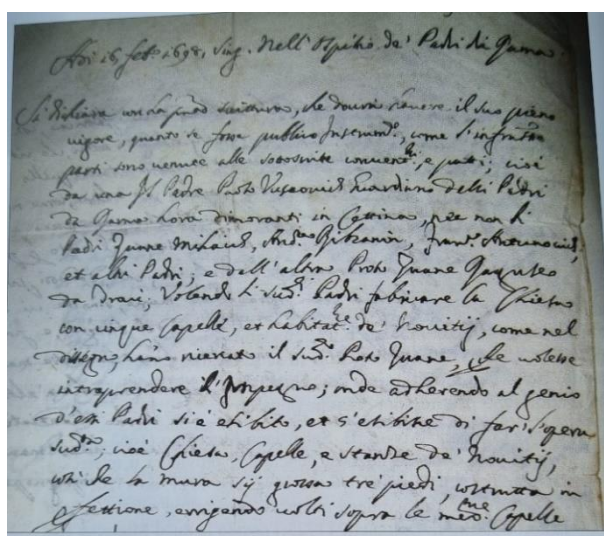 Adi 16 feb.º 1698, Sing. Nell'Ospitio de' Padri di Rama.
Si dichiara con la pnte scrittura, che dovrà havere il suo pieno
vigore, quanto se fosse publico Instrum.º, come l'infratte
parti sono venute alle sottoscritte e patti; cioè
da una Padre Guardiano delli Padri
da Rama hora dimoranti in Cettina, nec non li
Padri Zuane And.ª Franc.
et altri Padri; e dall'altra Proto Zuane
da Volendo li sud.i Padri fabricare la Chiesa
con cinque Capelle, et habitat.ne de' Novitij, come nel
dissegno, hanno ricercato il sud.º Proto Zuane, che volesse
intraprendere l'Impegno; onde adherendo al genio
d'essi Padri si è esibito, et s'esibisce di far l'opera
sud.ta, cioè Chiesa, Capelle, e stanze de' Novitij,
che la mura sij grossa tre piedi, costrutta in
errigendo volti sopra le med.me Capelle